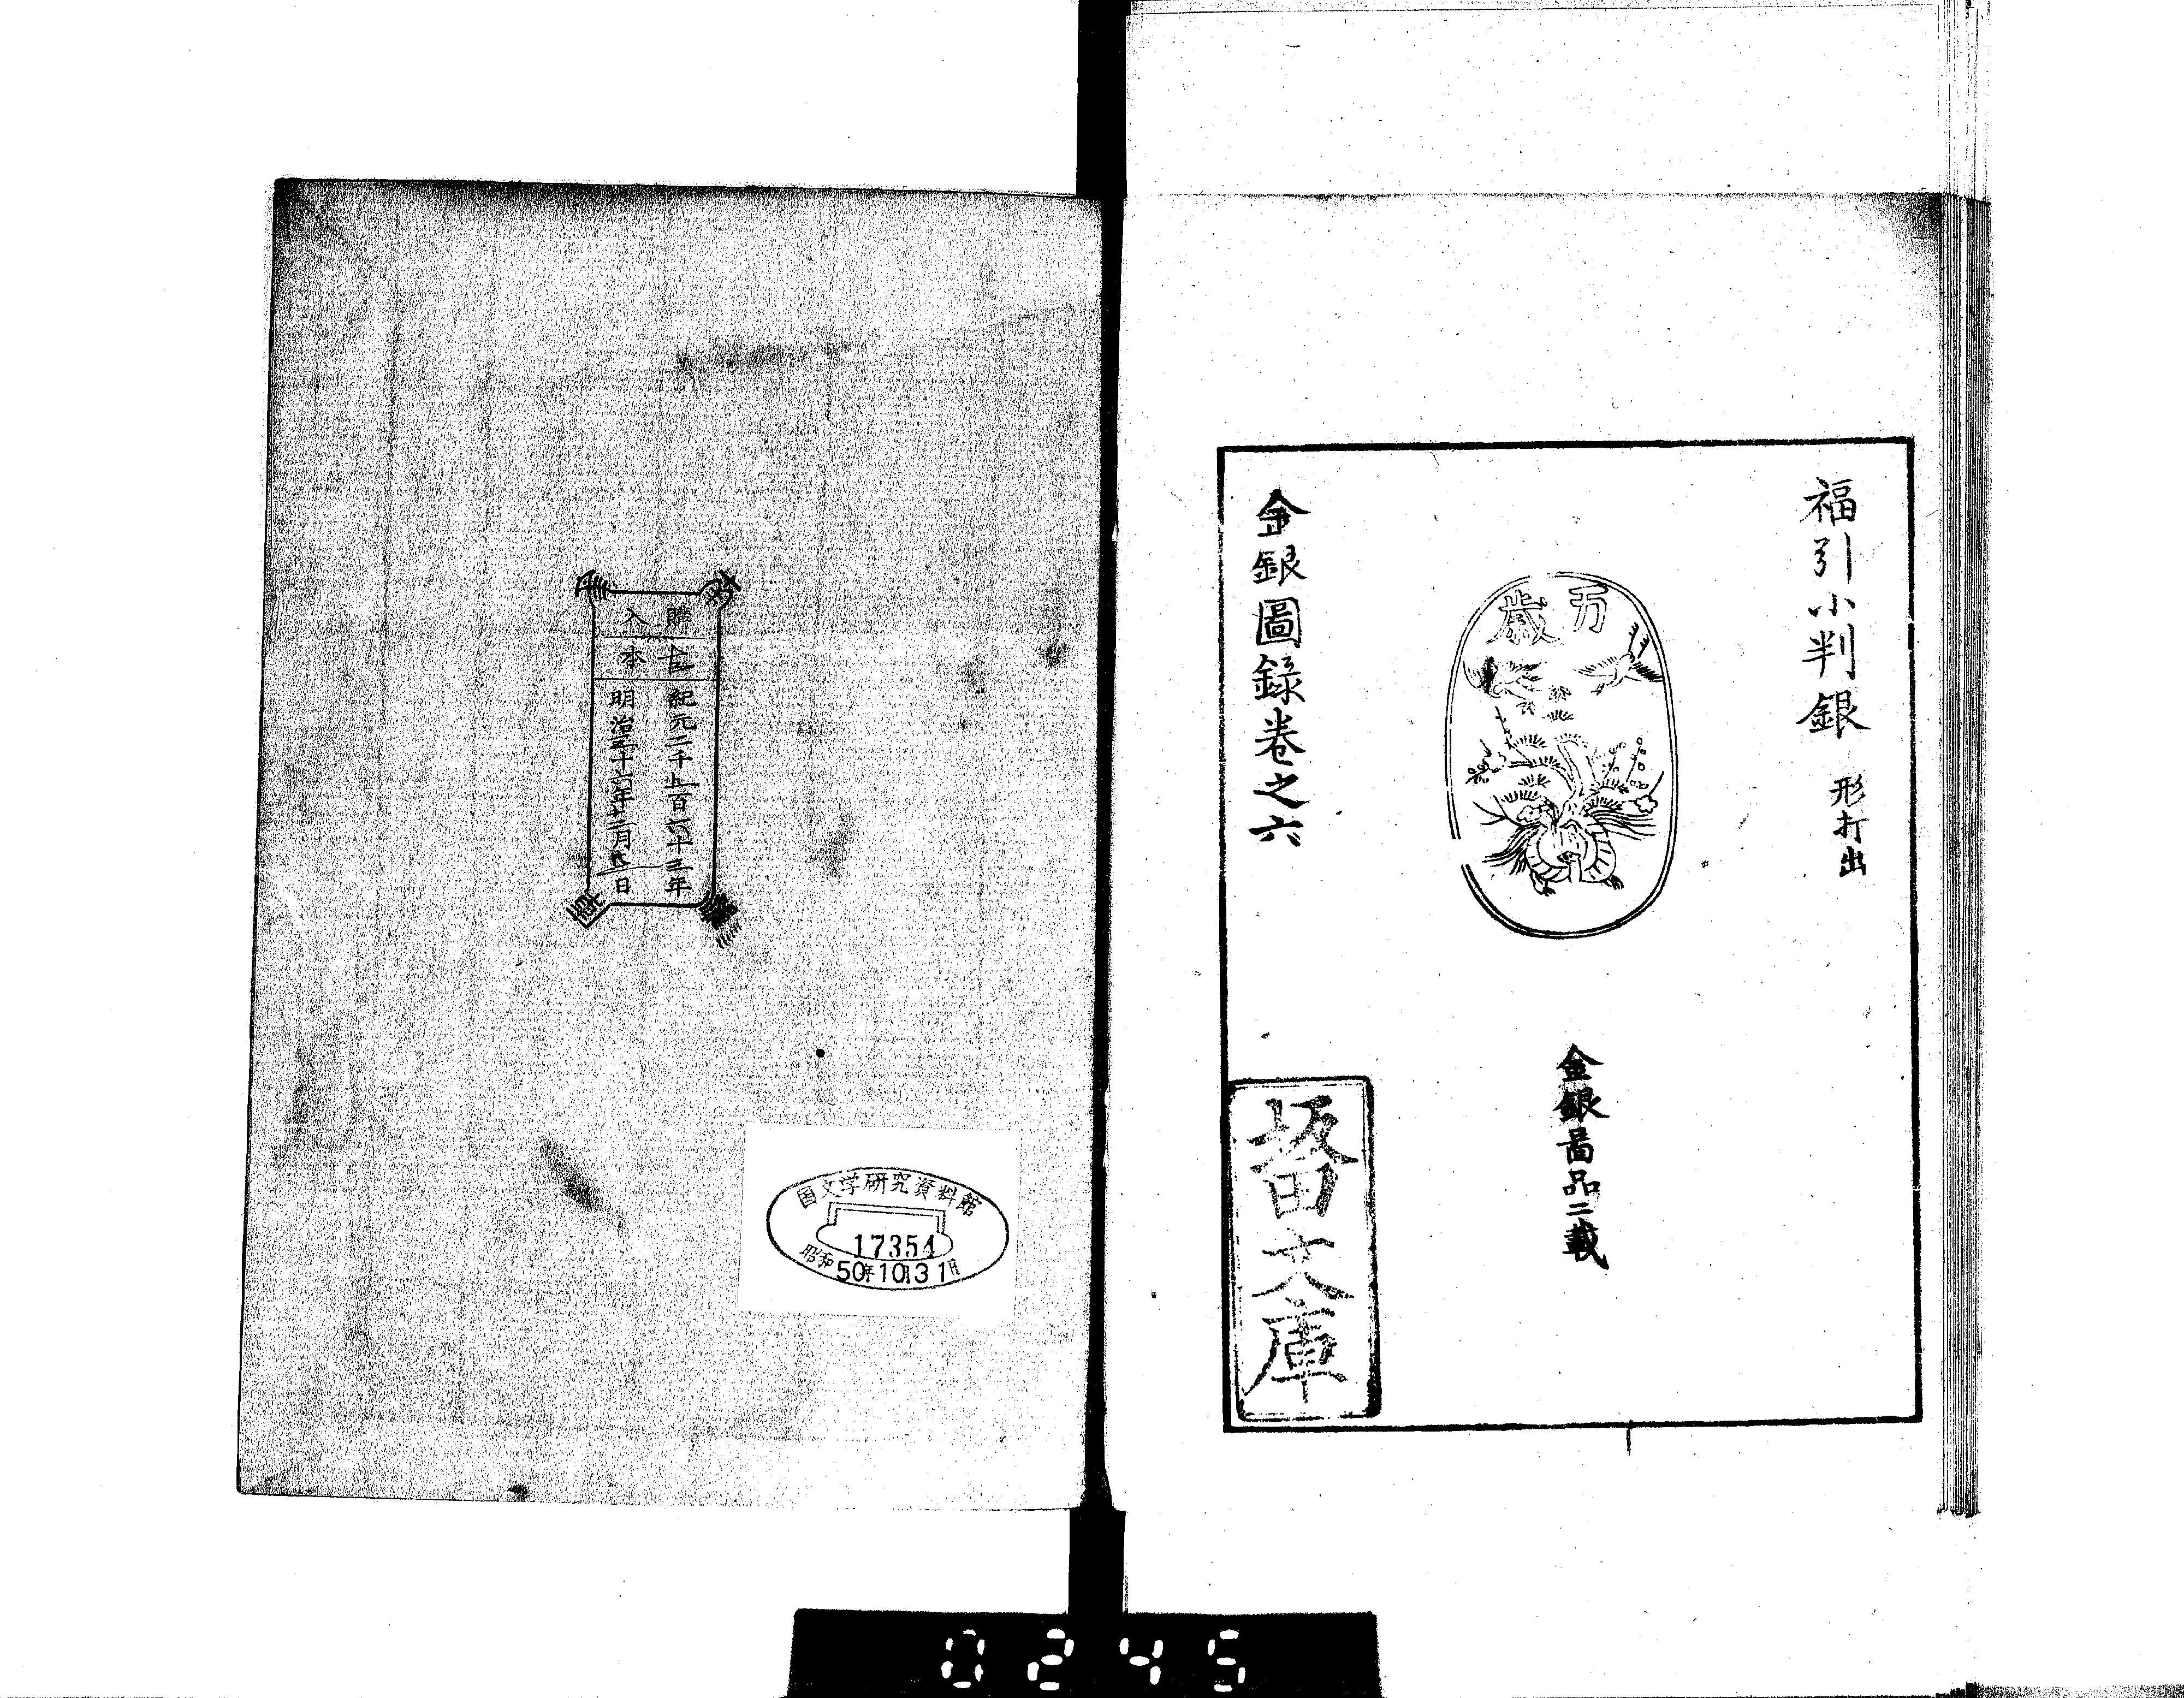 福引小判銀 形打出
万歳
金銀啚品ニ載
金銀圖錄卷之六
文庫
購入
本
紀元二千五百六十三年
明治三十六年十二月 日
国文学研究資料館
17354
昭和50年10月31日
0245